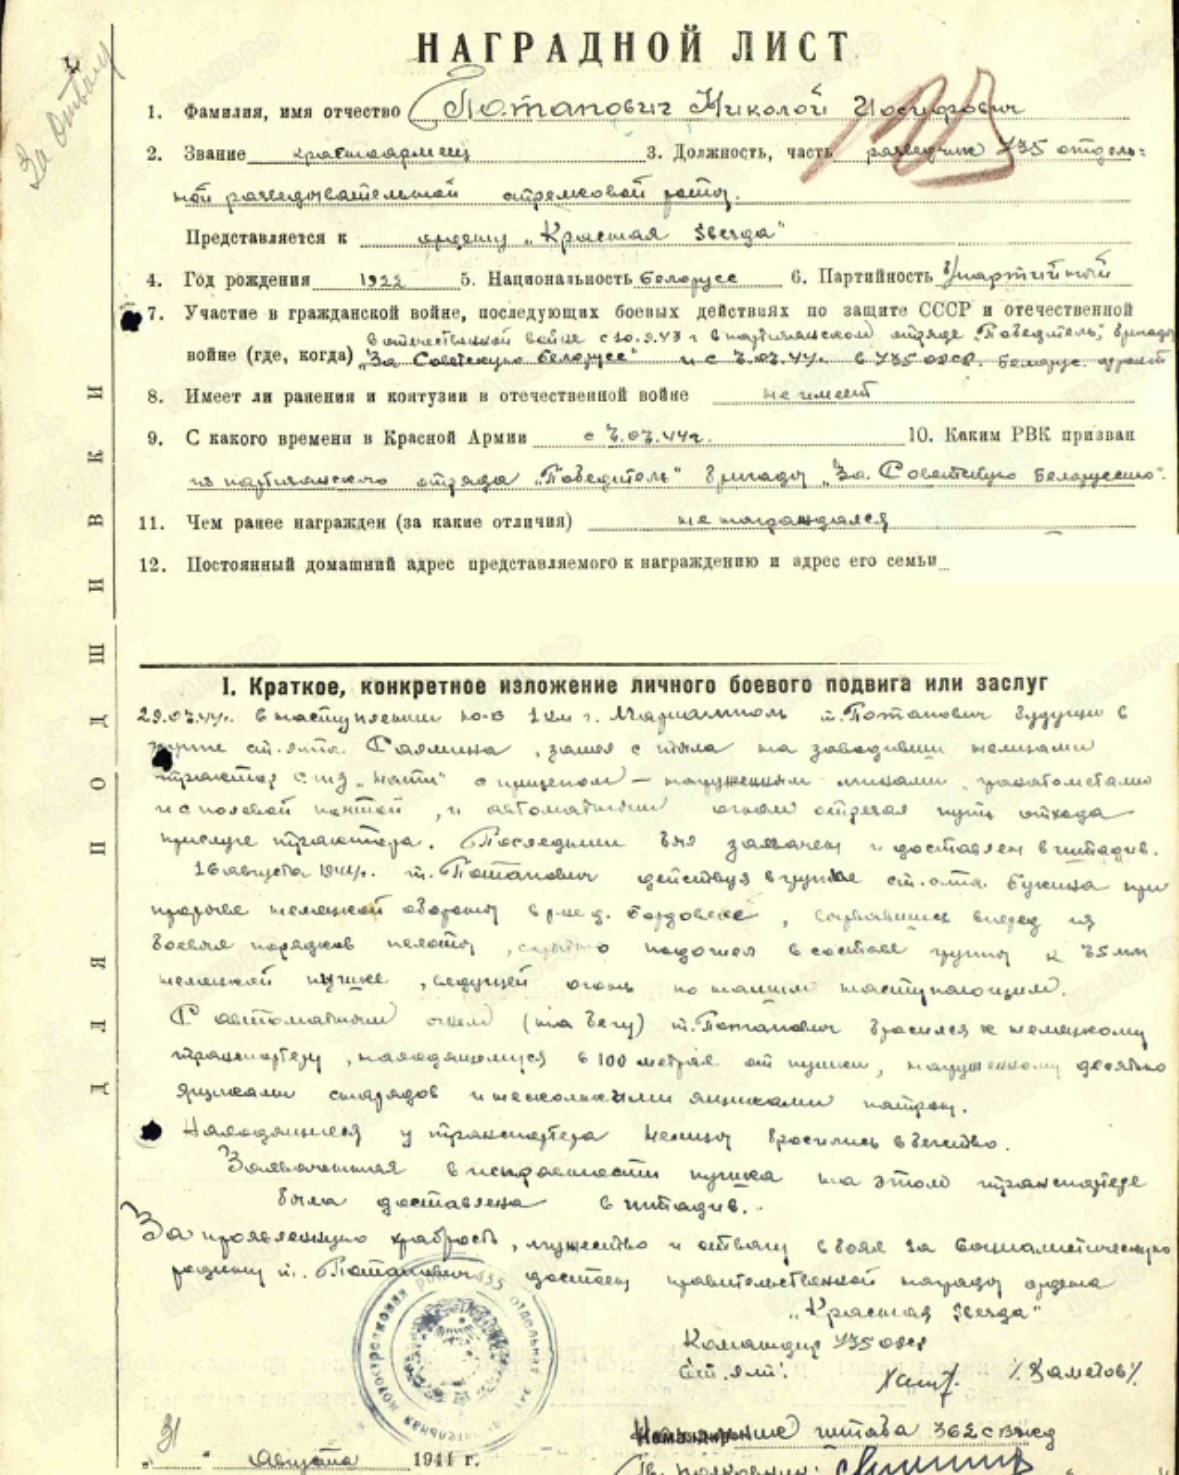 За отвагу
НАГРАДНОЙ ЛИСТ
1. Фамилия, имя отчество Потапович Николой Иосифович
2. Звание красноармеец 3. Должность, часть разведчик 435 отдель-
ной разведывательной стрелковой роты.
Представляется к ордену „Красная Звезда"
4. Год рождения 1922 5. Национальность белорусс 6. Партийность б/партийный
7. Участие в гражданской войне, последующих боевых действиях по защите СССР и отечественной
в отечественной войне с в партизанском отряде „Победитель", бригады
войне (где, когда) „За Советскую белорусс" и с 7.07.44г. в 435 Белорус. фронт
8. Имеет ли ранения и контузии в отечественной войне не имеет
9. С какого времени в Красной Армии с 7.07.44г. 10. Каким РВК призван
из партизанского отряда „Победитель" бригады „За Советскую Белоруссию".
11. Чем ранее награжден (за какие отличия) не награждался
12. Постоянный домашний адрес представляемого к награждению и адрес его семьи
ДЛЯ ПОДШИВКИ
I. Краткое, конкретное изложение личного боевого подвига или заслуг
29.07.44г. в наступлении ю-в 1 км г. Мариамполь т. Потапович будучи в
группе ст. л-та Салмина, зашел с тыла на заводивши немцами
трактор с прицепом – нагруженным минами, гранатометами
и с полевой почтой, и автоматным огнем отрезал путь отхода
прислуге трактора. Последний был захвачен и доставлен в штадив.
16 августа 1944г. т. Потапович действуя в группе ст. л-та Букина при
прорыве немецкой обороны в р-не д. Бордовске, вырвавшись вперед из
боевых порядков пехоты, скрытно подошел в составе группы к 75 мм
немецкой пушке, ведущей огонь по нашим наступающим.
С автоматным огнем (на бегу) т. Потапович бросился к немецкому
транспортеру, находящемуся в 100 метрах от пушки, нагруженному десятью
ящиками снарядов и несколькими ящиками патрон.
Находящиеся у транспортера немцы бросились в бегство.
Захваченная в исправности пушка на этом транспортере
была доставлена в штадив.
За проявленную храбрость, мужество и отвагу в боях за социалистическую
родину т. Потапович достоен правительственной награды ордена
„Красная Звезда"
Командир 435
ст. л-т. /Хаметов/
31 августа 1944 г.
штаба 362